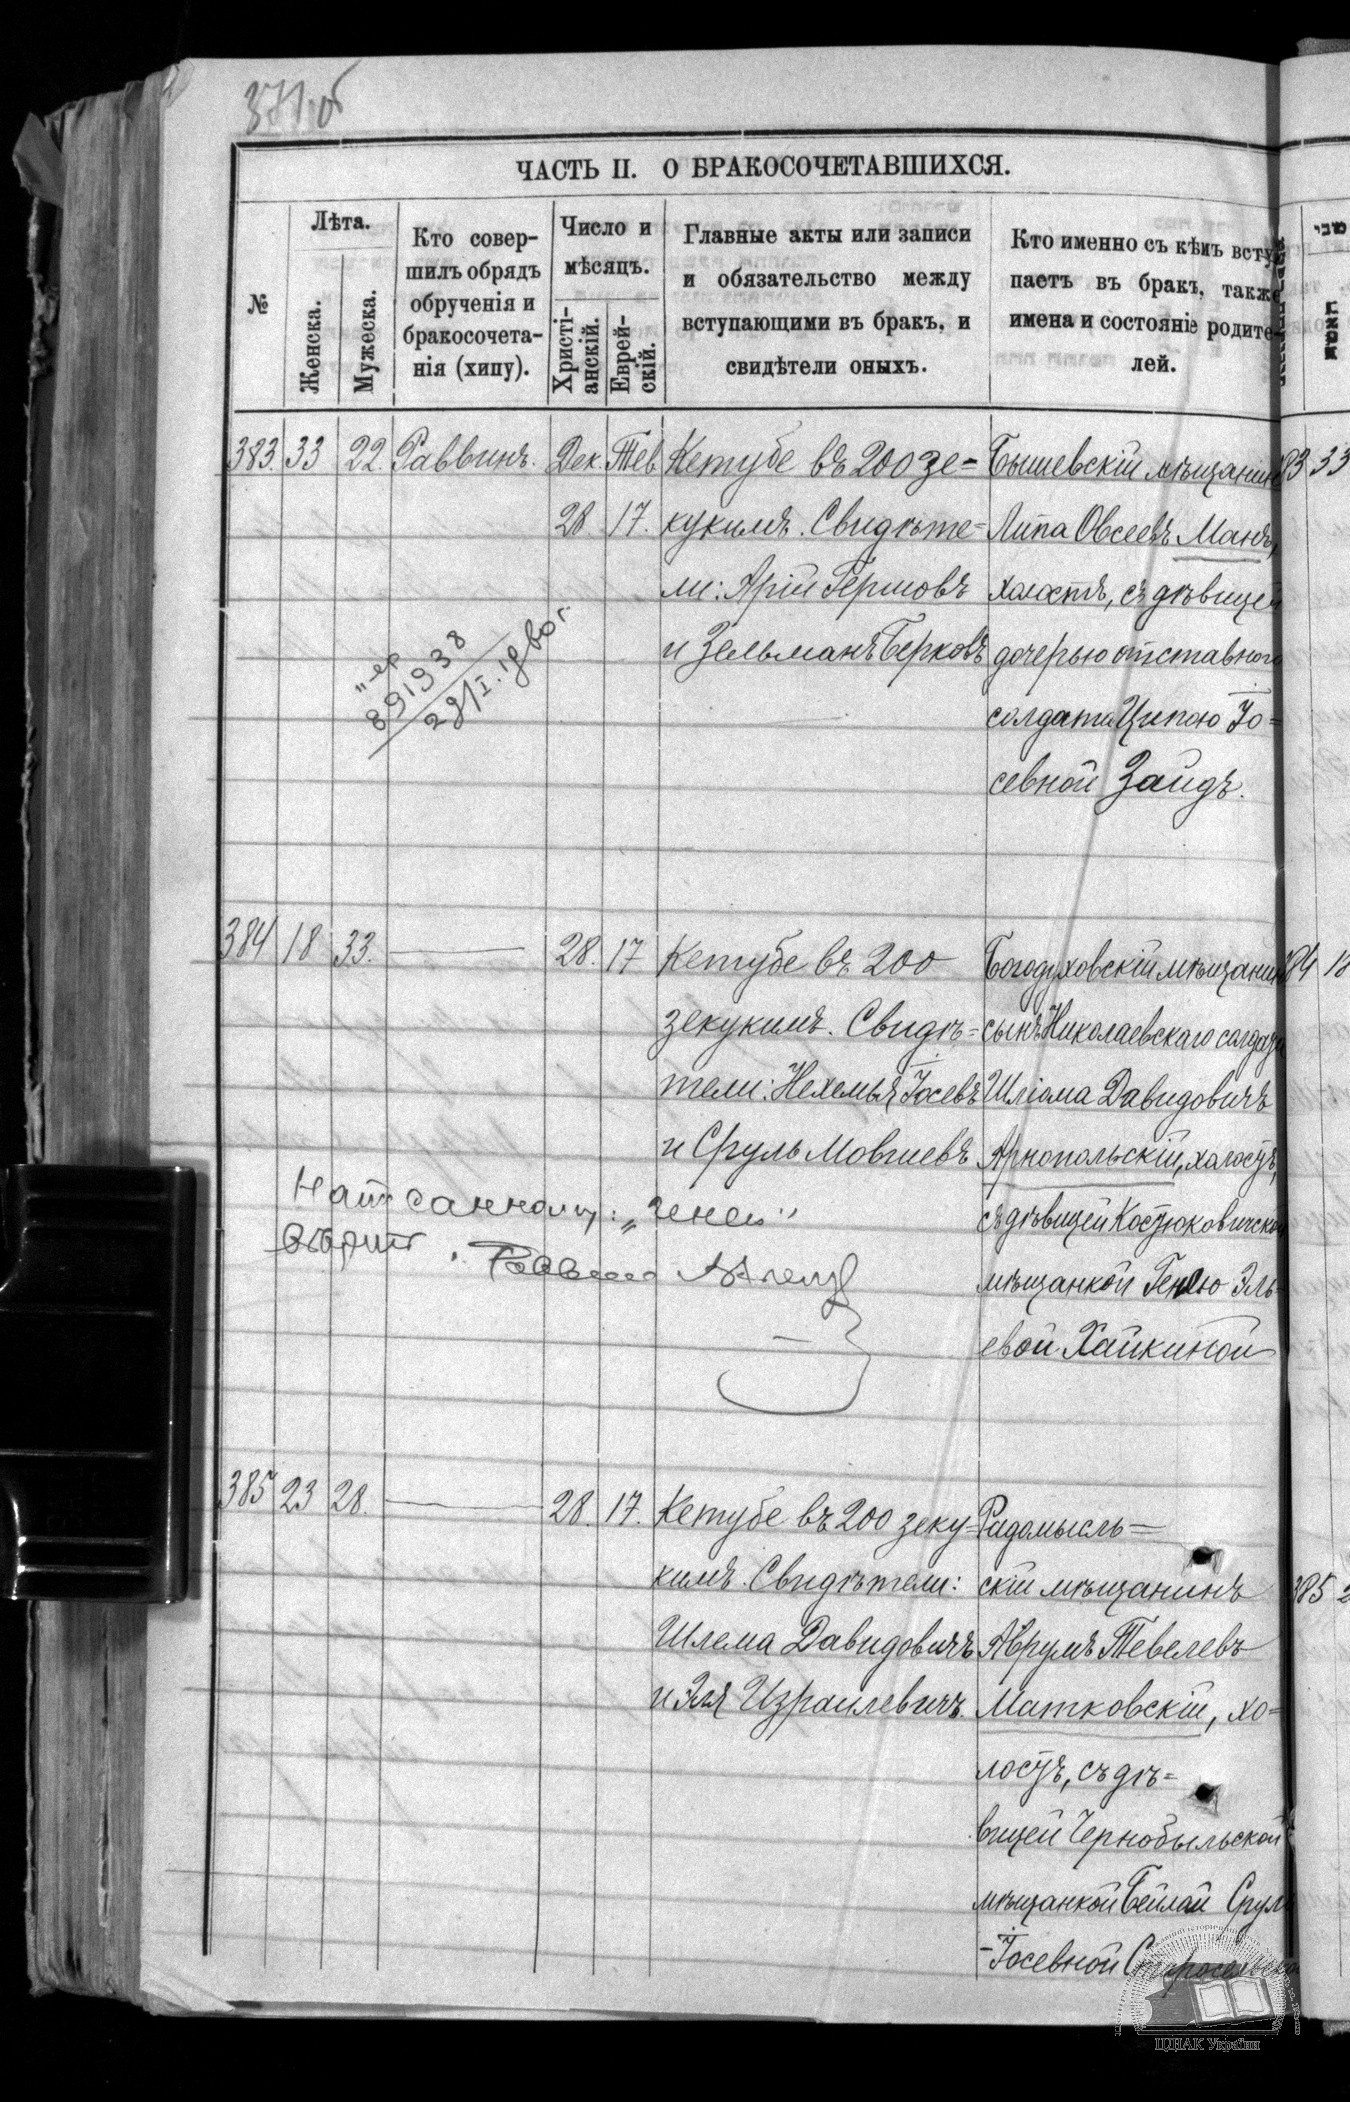 371 об
ЧАСТЬ II. О БРАКОСОЧЕТАВШИХСЯ.
№
Лѣта.
Женска.
Мужеска.
Кто совер-
шилъ обрядъ
обрученія и
бракосочета-
нія (хипу).
Число и
мѣсяцъ.
Христі-
анскій.
Еврей-
скій.
Главные акты или записи
и обязательство между
вступающими въ бракъ, и
свидѣтели оныхъ.
Кто именно съ кѣмъ всту
паетъ въ бракъ, также
имена и состояніе родите
лей.
383. 33 22. Раввинъ. Дек. Тев
28. 17.
Кетубе въ 200 зе=
кукимъ. Свидѣте=
ли: Арій Гершовъ
и Зельманъ Берковъ
Бышевскій мѣщанин
Липа Овсеевъ Манъ,
холостъ, съ дѣвицей
дочерью отставного
солдата Ципою Іо=
севной Зайдъ.
891938
29/I
384 18 33. 28. 17
Кетубе въ 200
зекукимъ. Свидѣ=
тели: Нехемья Іосевъ
и Сруль Мовшевъ
Богодуховскій мѣщанин
сынъ Николаевскаго солдата
Шліома Давидовичъ
Арнопольскій, холостъ,
съ дѣвицей Костюковичской
мѣщанкой Генею Эль-
евой Хайкиной
Написанному: „Генею"
вѣрить. Раввинъ
385 23 28. 28. 17.
Кетубе въ 200 зеку=
кимъ. Свидѣтели:
Шлема Давидовичъ
и Эля Израилевичъ.
Радомысль=
скій мѣщанинъ
Аврумъ Тевелевъ
Матковскій, хо=
лостъ, съ дѣ=
вицей Чернобыльской
мѣщанкой Бейлой Сруль
-Іосевной
83 33
384 18
385 2
ЦДІАК України